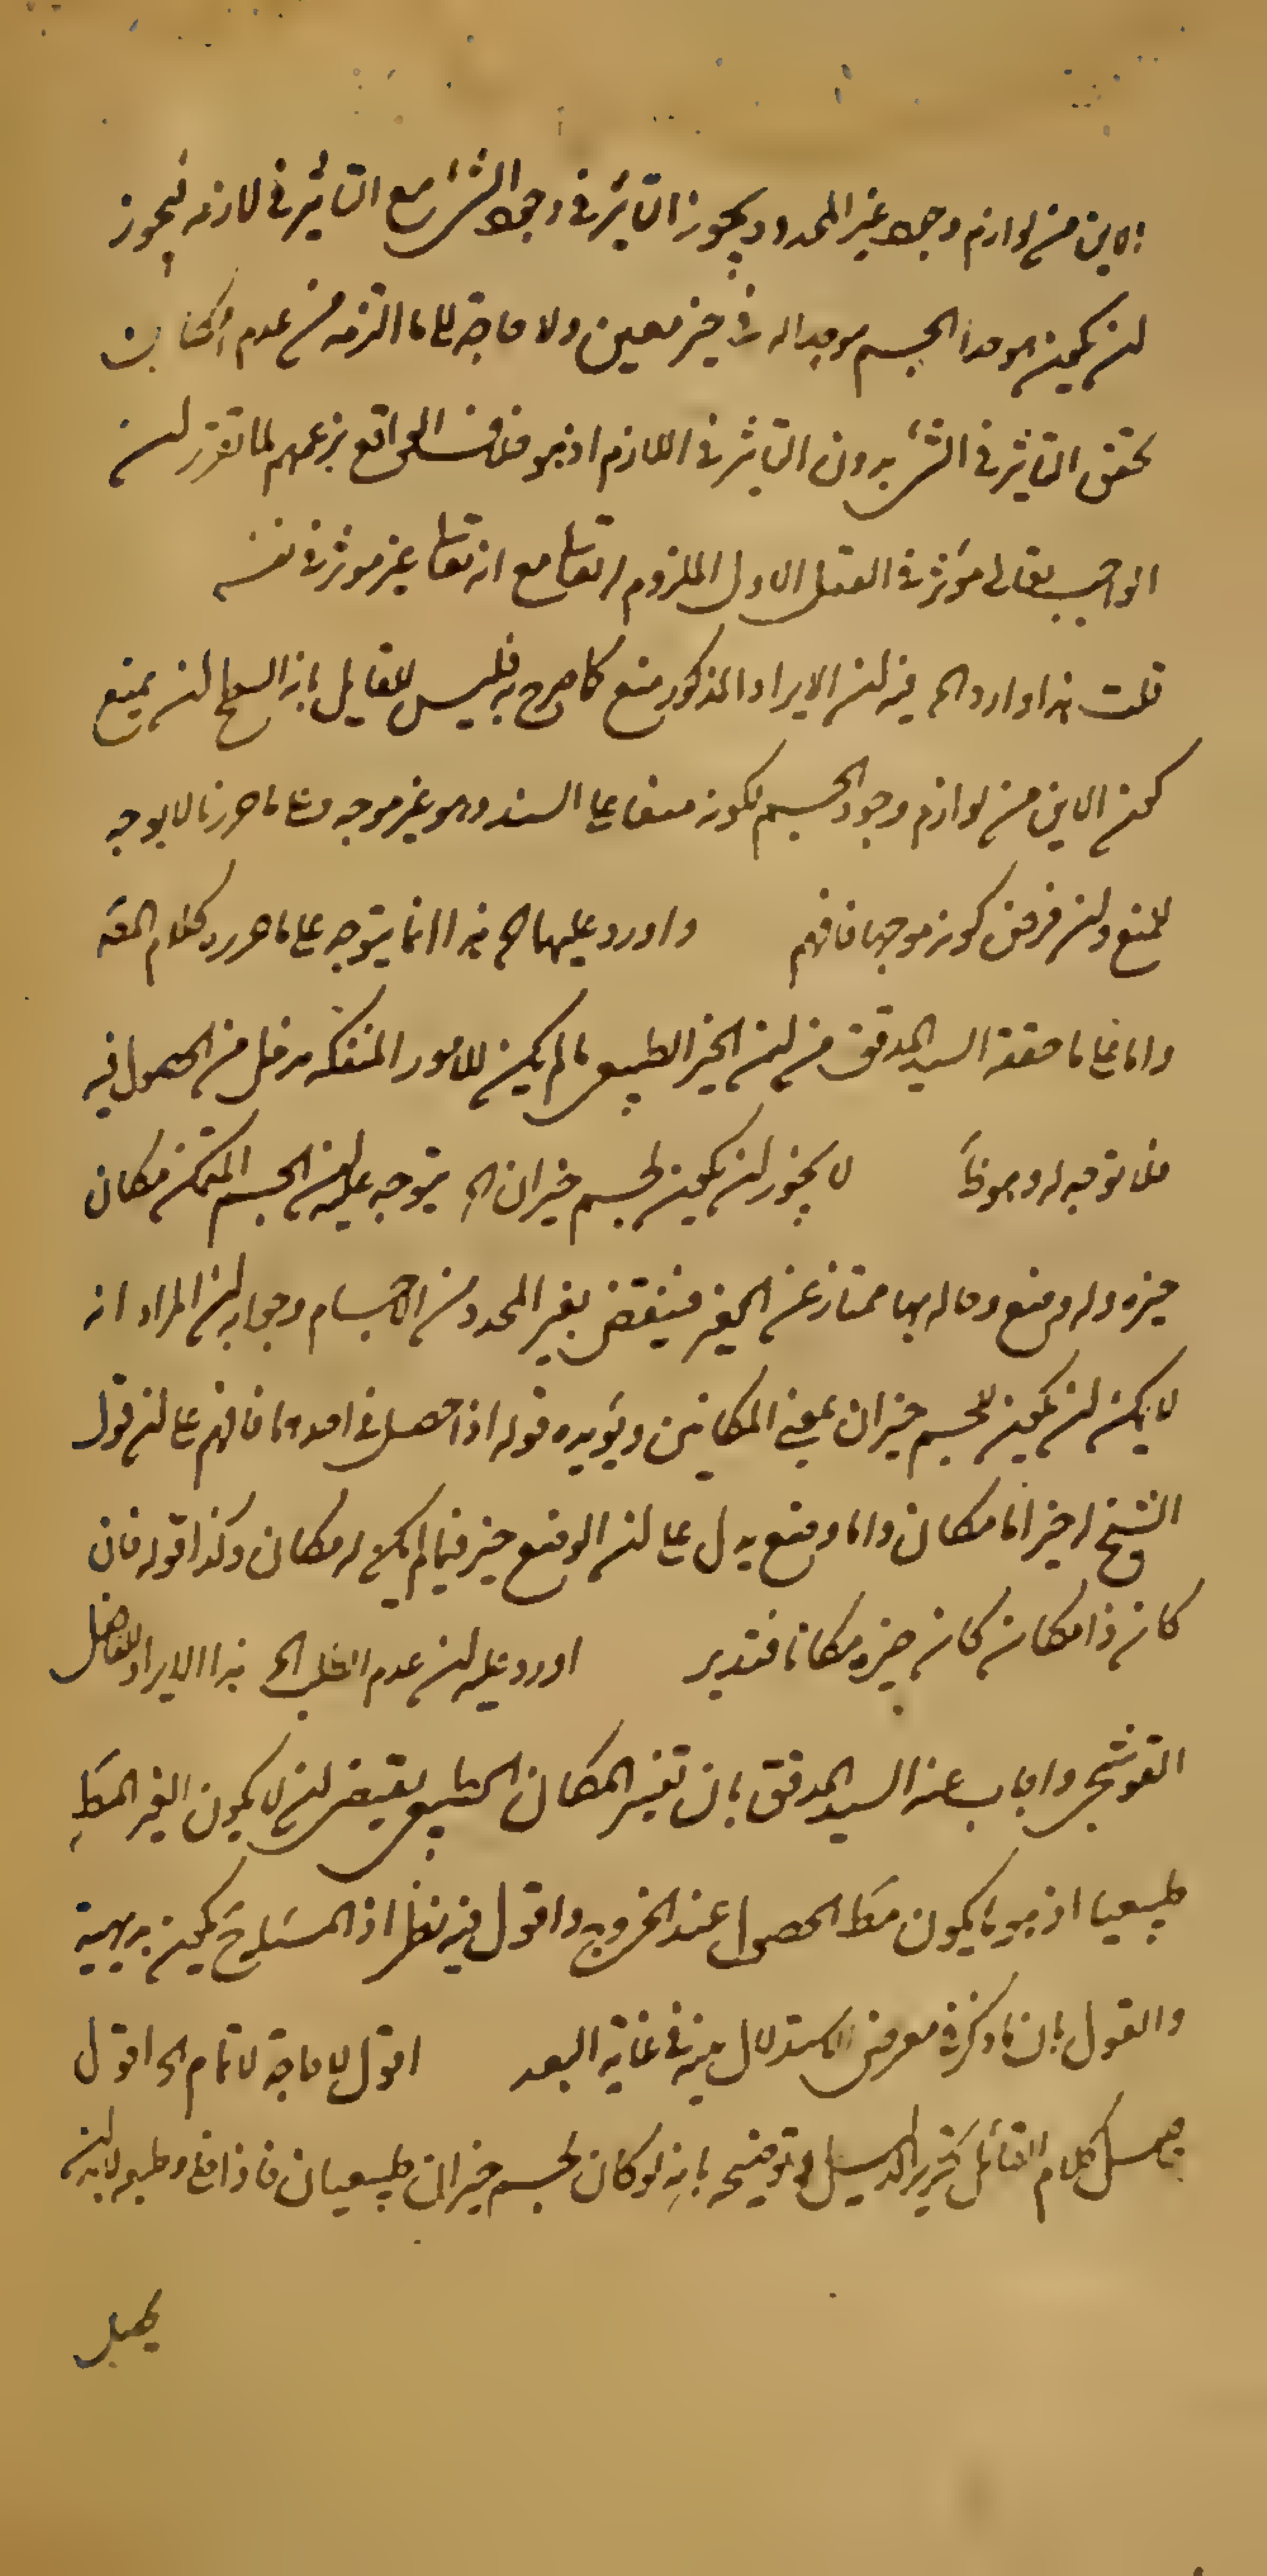 الاين من لوازم وجود غير المحدد ويجوز التاثير في وجود الشئ مع التاثير في لازمه فيجوز
ان يكون موجد الجسم موجدا له في حيز معين ولا حاجة الى ما التزمه من عدم امكان
تحقق التاثير في الشئ بدون التاثير في اللازم اذ هو خلاف الواقع بزعمهم لما تقرر ان
الواجب تعالى مؤثر في العقل الاول الملزوم له تعالى مع انه تعالى غير موثر في نفسه
قلت هذا وارد الخ فيه ان الايراد المذكور منع كما صرح به فليس للقايل بانه السطح ان يمنع
كون الاين من لوازم وجود الجسم لكونه منعا على السند وهو غير موجه وعلى ما حررنا لا يوجه
المنع وان فرض كونه موجها فافهم واورد عليهما الخ هذا انما يتوجه على ما حرره كلام المص
واما على ما حققه السيد المدقق من ان الحيز الطبيعي ما لم يكن للامور المنفكة مدخل في الحصول فيه
فلا توجه له وهو ظ لا يجوز ان يكون لجسم حيزان الخ يتوجه عليه ان الجسم المتمكن مكان
حيزه وله وضع وحاله بها ممتاز عن الغير فينتقض بغير المحدد من الاجسام وجوابه ان المراد انه
لا يمكن ان يكون للجسم حيزان بمعنى المكانين ويؤيده قوله اذا حصل في احدهما فافهم على ان قول
الشيخ له حيز اما مكان واما وضع يدل على ان الوضع حيز فيما لم يكن له مكان وكذا قوله فان
كان ذا مكان كان حيزه مكانا فتدبر اورد عليه ان عدم الطلب الخ هذا الايراد للفاضل
القوشجي واجاب عنه السيد المدقق بان تفسير المكان الطبيعي يقتضي ان لا يكون الغير المط
طبيعيا اذ هو ما يكون مط الحصول عند الخروج واقول فيه نظر اذ المسئلة ح يكون بديهية
والقول بان ما ذكر في معرض الاستدلال فيه في غاية البعد اقول لا حاجة لاتمام الخ اقول
حاصل كلام القائل تحرير الدليل وتوضيحه بانه لو كان لجسم حيزان طبيعيان فاذا خلى وطبعه لابد ان